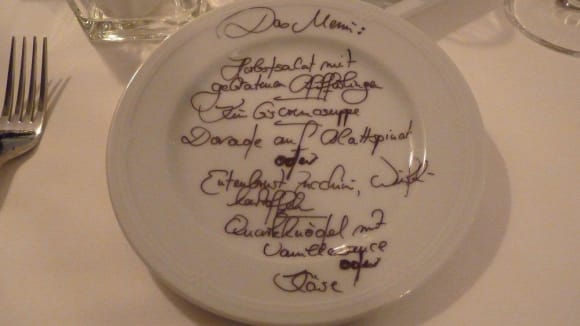 Das Menü:
Herbstsalat mit
gebratenen Pfifferlingen
Kürbiscremesuppe
Dorade auf Blattspinat
oder
Entenbrust, Zucchini, Würfel-
kartoffeln
Quarkknödel mit
Vanillesauce
oder
Käse